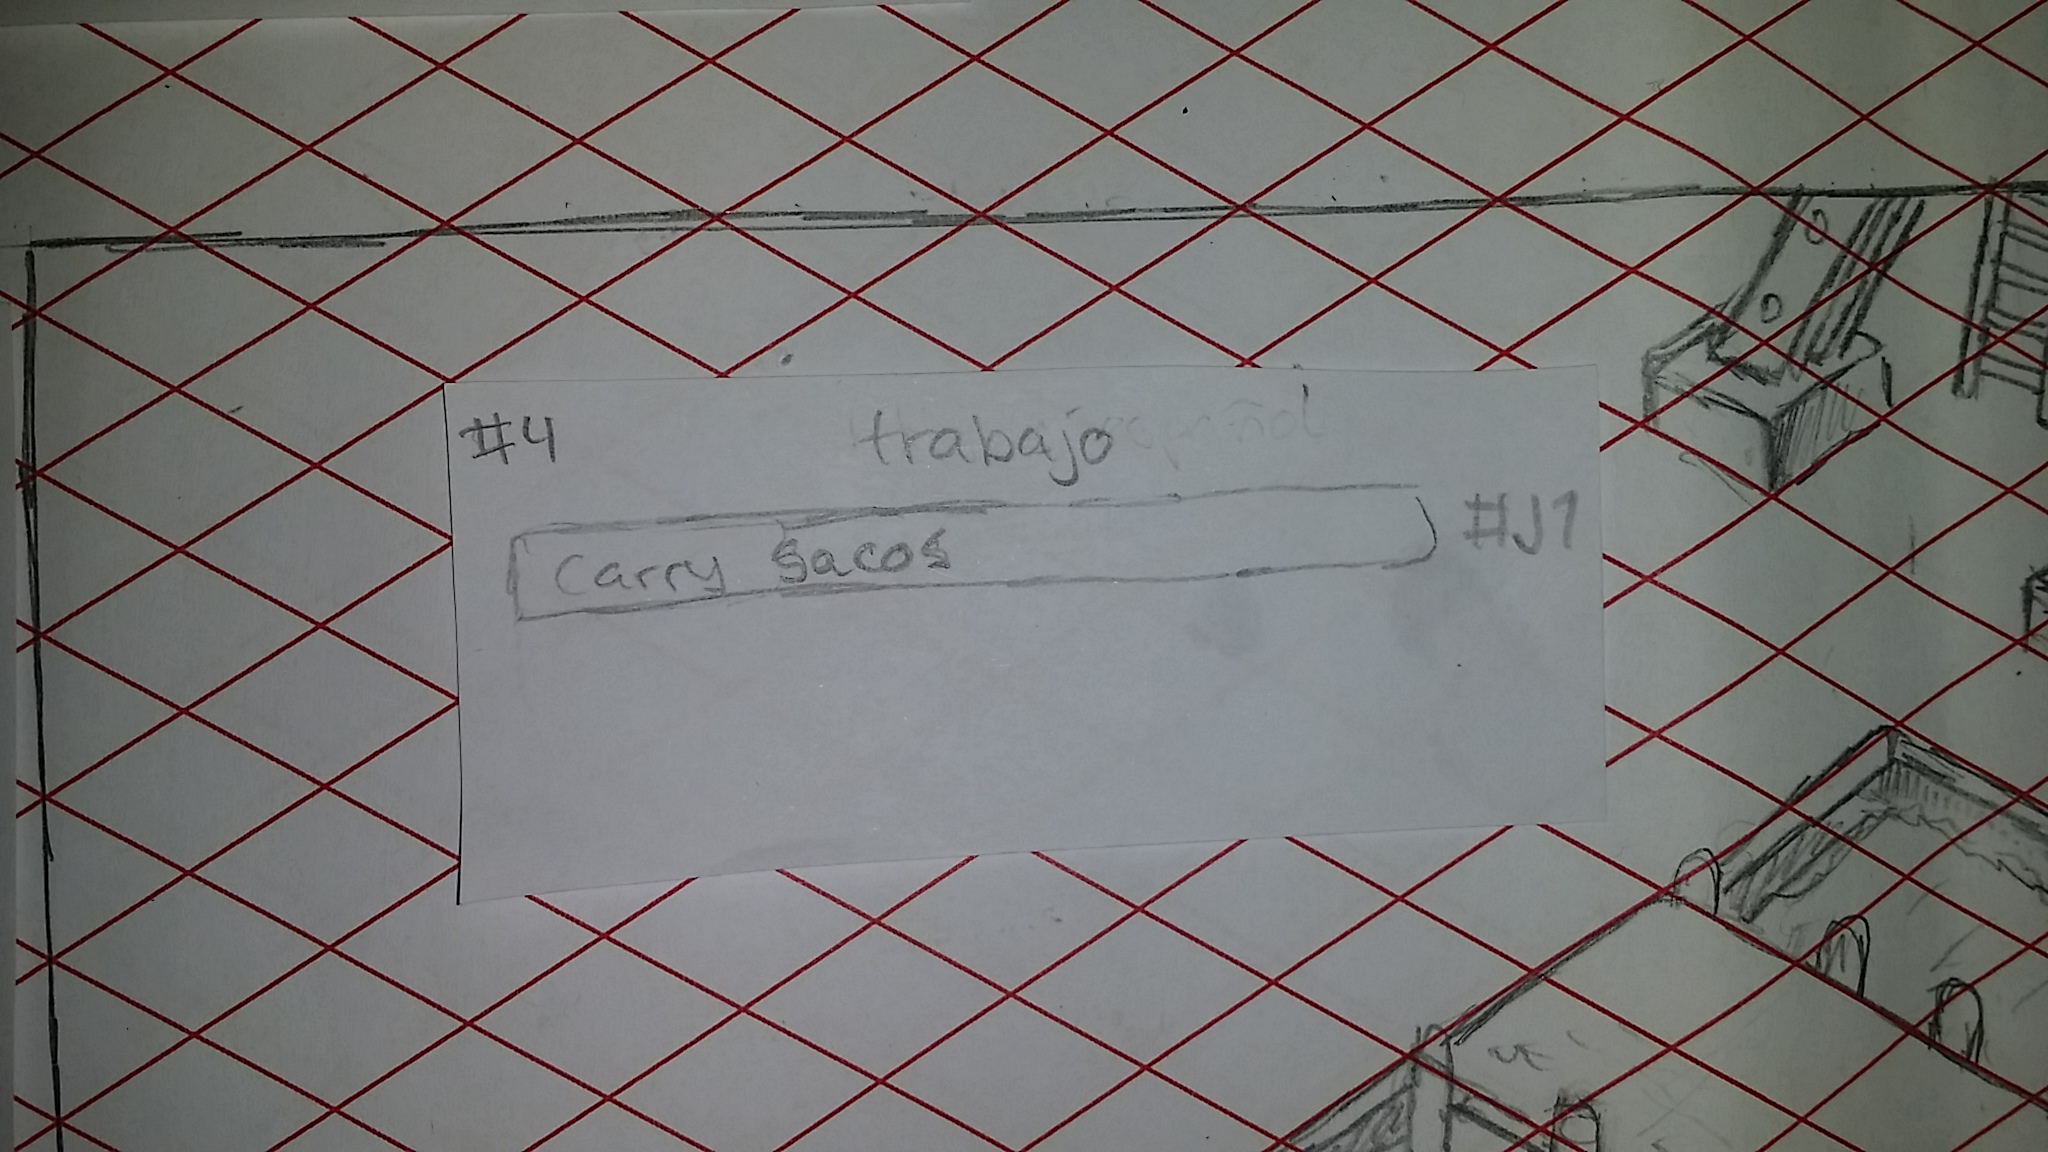 #4 trabajo
#J1
Carry sacos